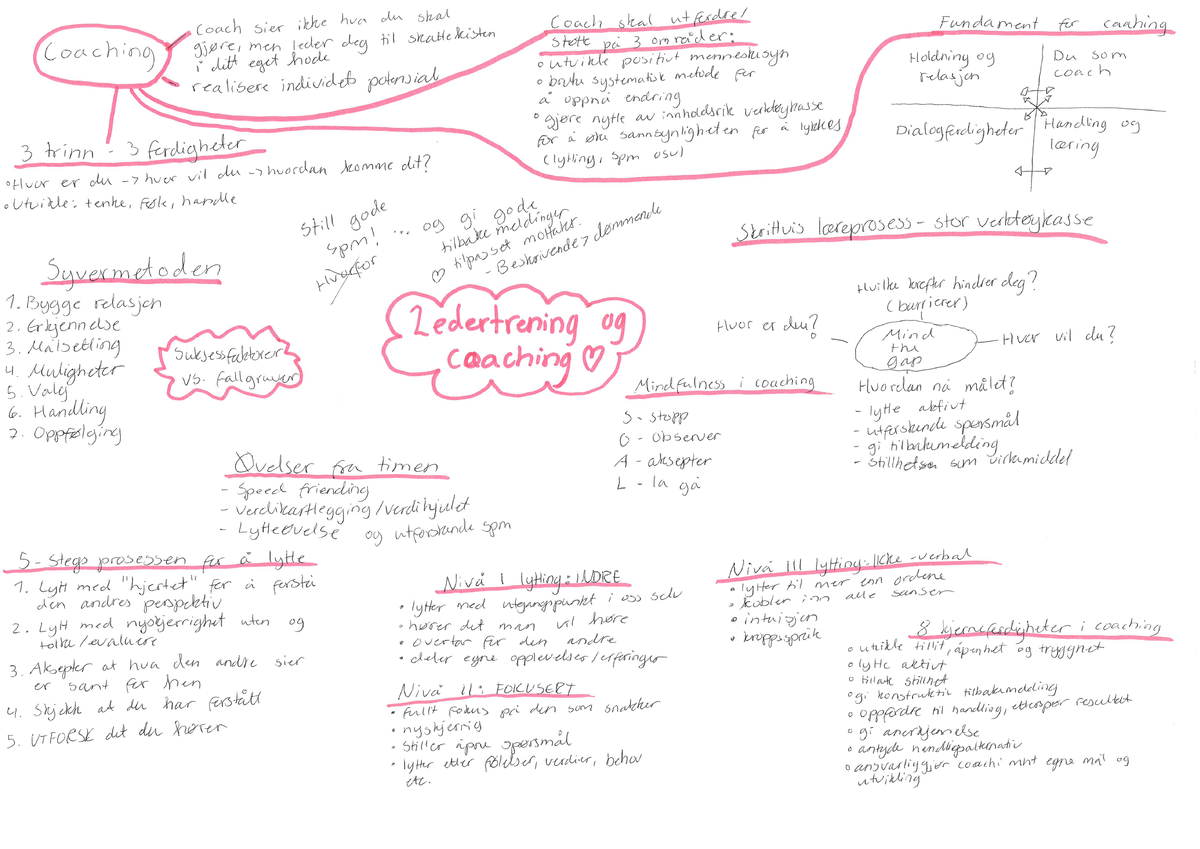 Coaching
Coach sier ikke hva du skal
gjøre, men leder deg til skattekisten
i ditt eget hode
realisere individets potensial
Coach skal utfordre/
støtte på 3 områder:
utvikle positivt menneskesyn
bruke systematisk metode for
å oppnå endring
gjøre nytte av innholdsrik verktøykasse
for å øke sannsynligheten for å lykkes
(lytting, spm osv)
Fundament for coaching
Holdning og
relasjon
Du som
coach
Dialogferdigheter
Handling og
læring
3 trinn - 3 ferdigheter
Hvor er du -> hvor vil du -> hvordan komme dit?
Utvikle: tenke, føle, handle
Still gode
spm! ... og gi gode
Hvorfor
tilbakemeldinger
♡ tilpasset mottaker.
- Beskrivende > dømmende
Skrittvis læreprosess - stor verktøykasse
Syvermetoden
1. Bygge relasjon
2. Erkjennelse
3. Målsetting
4. Muligheter
5. Valg
6. Handling
7. Oppfølging
Suksessfaktorer
vs. fallgruver
Ledertrening og
coaching ♡
Hvilke krefter hindrer deg?
(barrierer)
Hvor er du?
Mind
the
gap
Hvor vil du?
Hvordan nå målet?
- lytte aktivt
- utforskende spørsmål
- gi tilbakemelding
- stillhet som virkemiddel
Mindfulness i coaching
S - stopp
O - observer
A - aksepter
L - la gå
Øvelser fra timen
- Speed friending
- Verdikartlegging/verdihjulet
- Lytteøvelse og utforskende spm
5-stegs prosessen for å lytte
1. Lytt med "hjertet" for å forstå
den andres perspektiv
2. Lytt med nysgjerrighet uten og
tolke/evaluere
3. Aksepter at hva den andre sier
er sant for hen
4. Skjekk at du har forstått
5. UTFORSK det du hører
Nivå I lytting: INDRE
lytter med utgangspunktet i oss selv
hører det man vil høre
overtar for den andre
deler egne opplevelser/erfaringer
Nivå II: FOKUSERT
fullt fokus på den som snakker
nyskjerrig
stiller åpne spørsmål
lytter etter følelser, verdier, behov
etc.
Nivå III lytting: Ikke-verbal
lytter til mer enn ordene
kobler inn alle sanser
intuisjon
kroppsspråk
8 kjerneferdigheter i coaching
utvikle tillit, åpenhet og trygghet
lytte aktivt
tillate stillhet
gi konstruktiv tilbakemelding
oppfordre til handling, etterspør resultatet
gi anerkjennelse
antyde handlingsalternativ
ansvarliggjør coachi mht egne mål og
utvikling